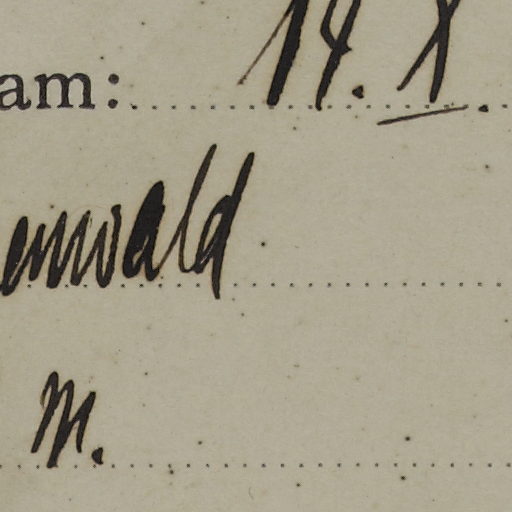 am: 14. X.
enwald
M.